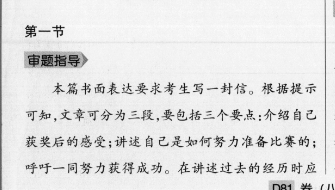 第一节
审题指导
本篇书面表达要求考生写一封信。根据提示
可知,文章可分为三段,要包括三个要点:介绍自己
获奖后的感受;讲述自己是如何努力准备比赛的;
呼吁一同努力获得成功。在讲述过去的经历时应
D81 卷 (